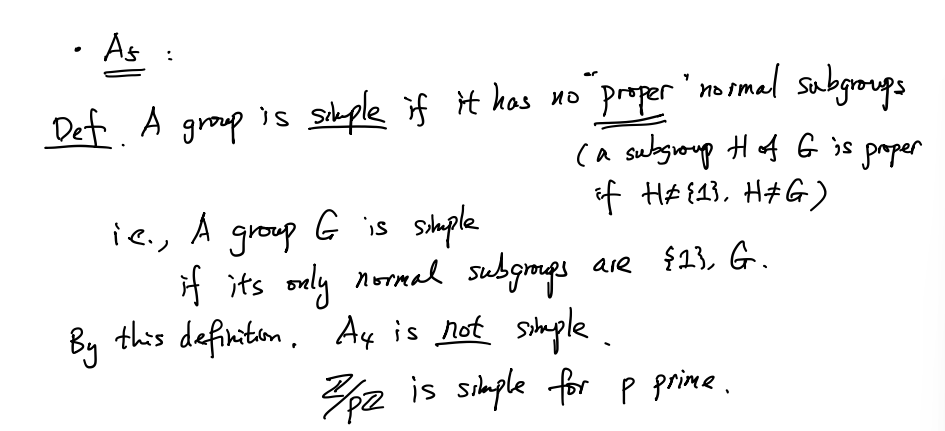 • A₅ :
Def. A group is simple if it has no "proper" normal subgroups
(a subgroup H of G is proper
if H≠{1}, H≠G)
i.e., A group G is simple
if its only normal subgroups are {1}, G.
By this definition, A₄ is not simple.
ℤ/pℤ is simple for p prime.